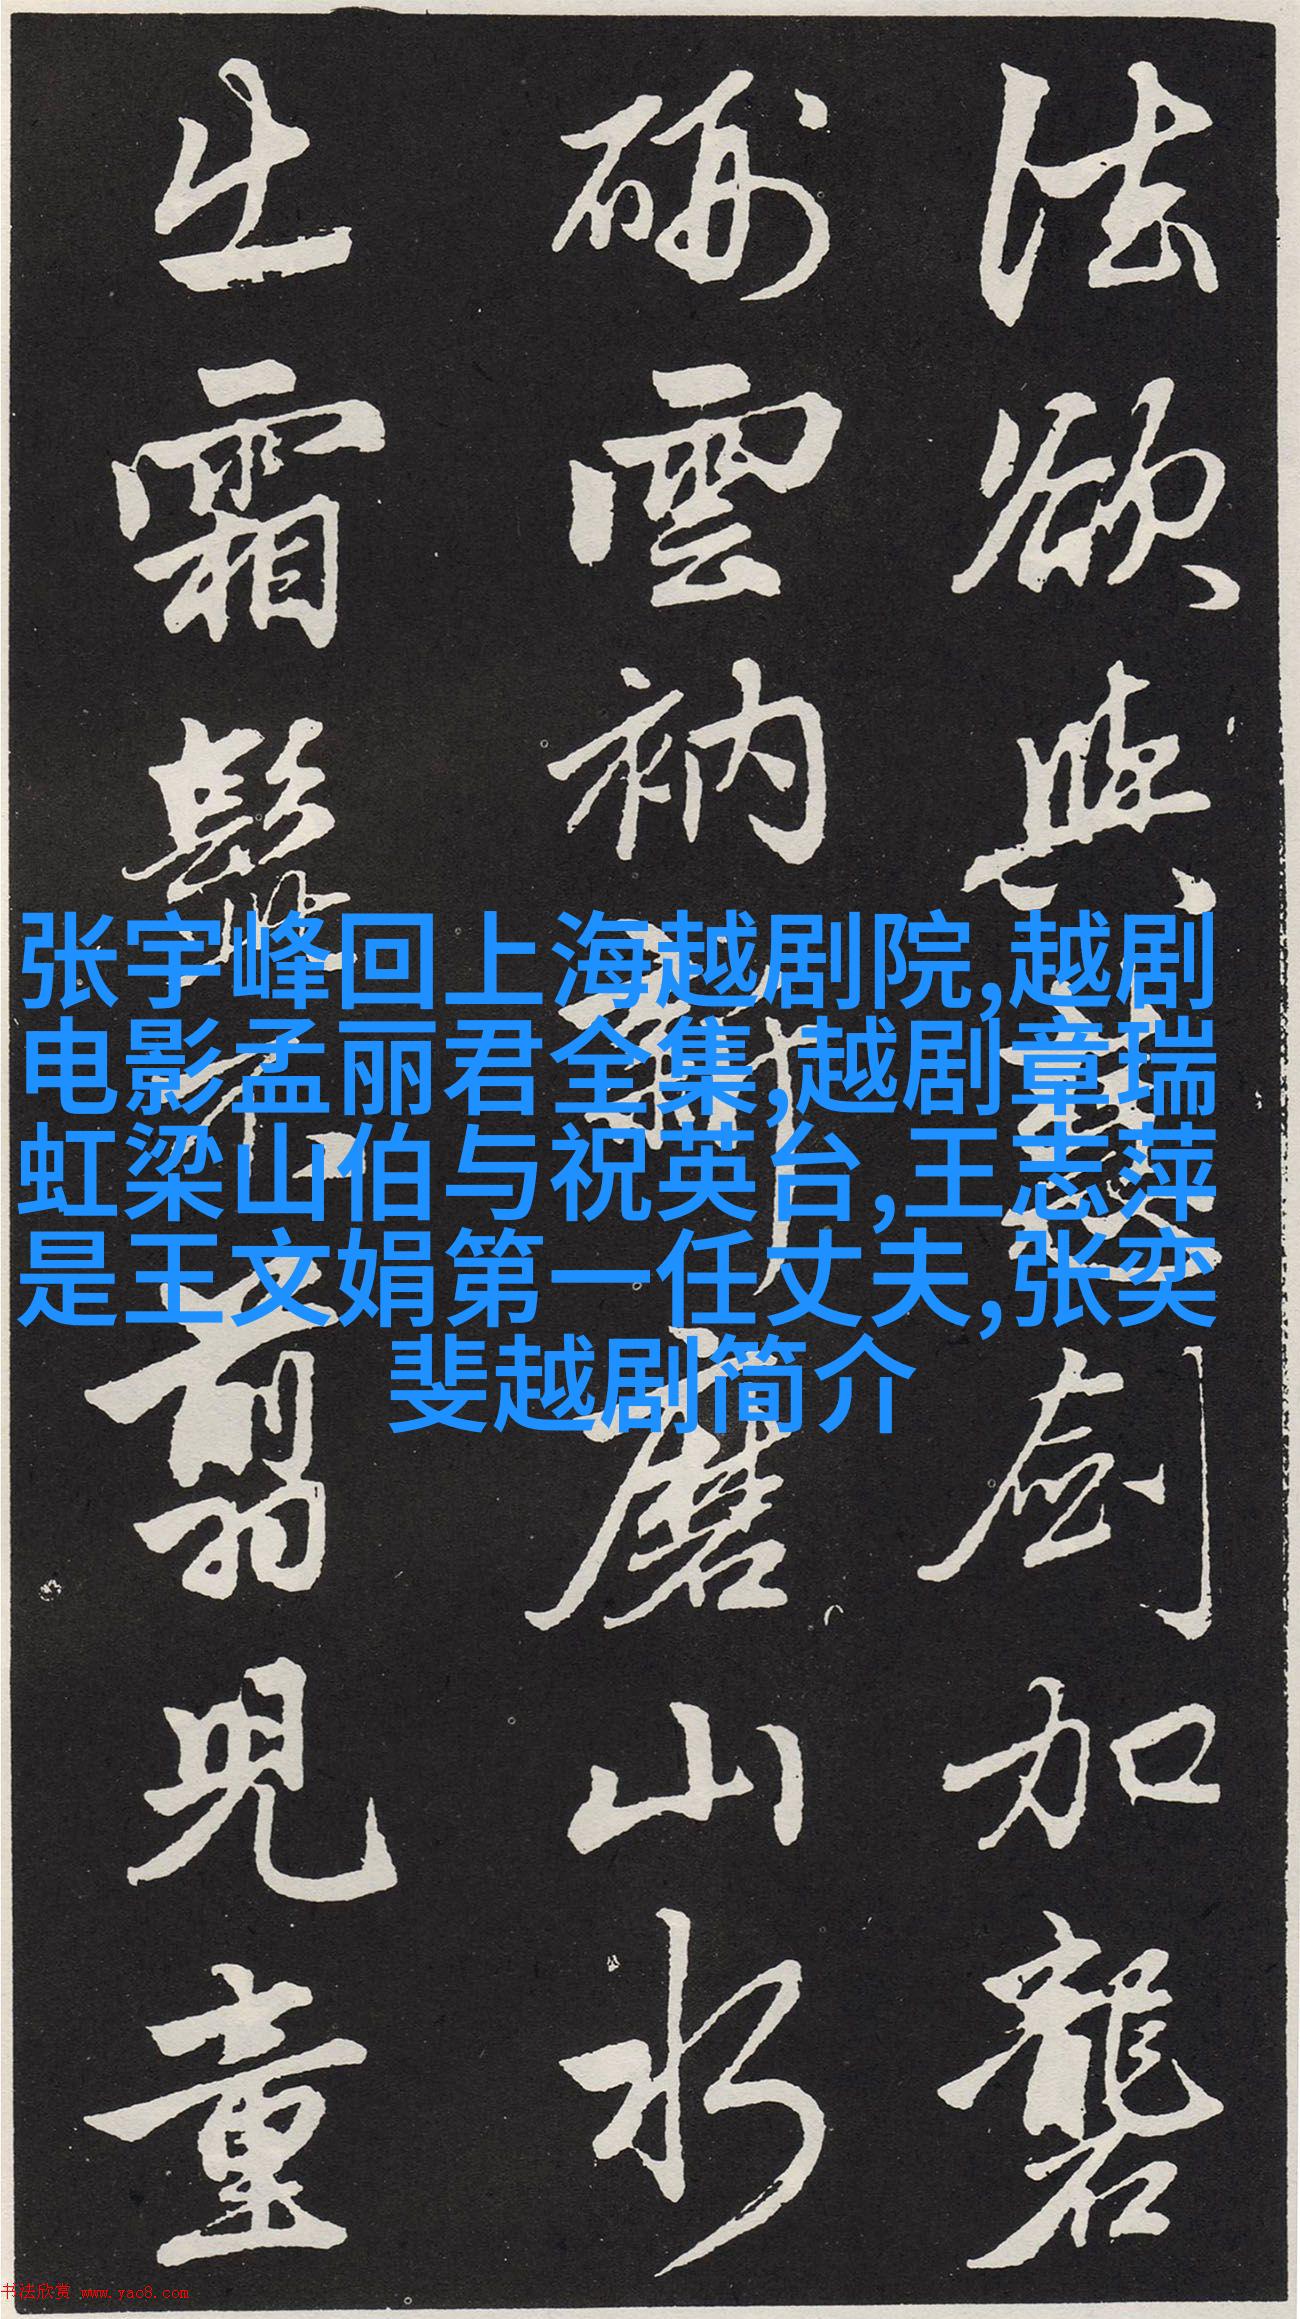 法欲與慧劍加礱
硎雲衲新磨山水
出霜髭不剪兒童
张宇峰回上海越剧院,越剧
电影孟丽君全集,越剧章瑞
虹梁山伯与祝英台,王志萍
是王文娟第一任丈夫,张奕
斐越剧简介
书法欣赏 www.yac8.com